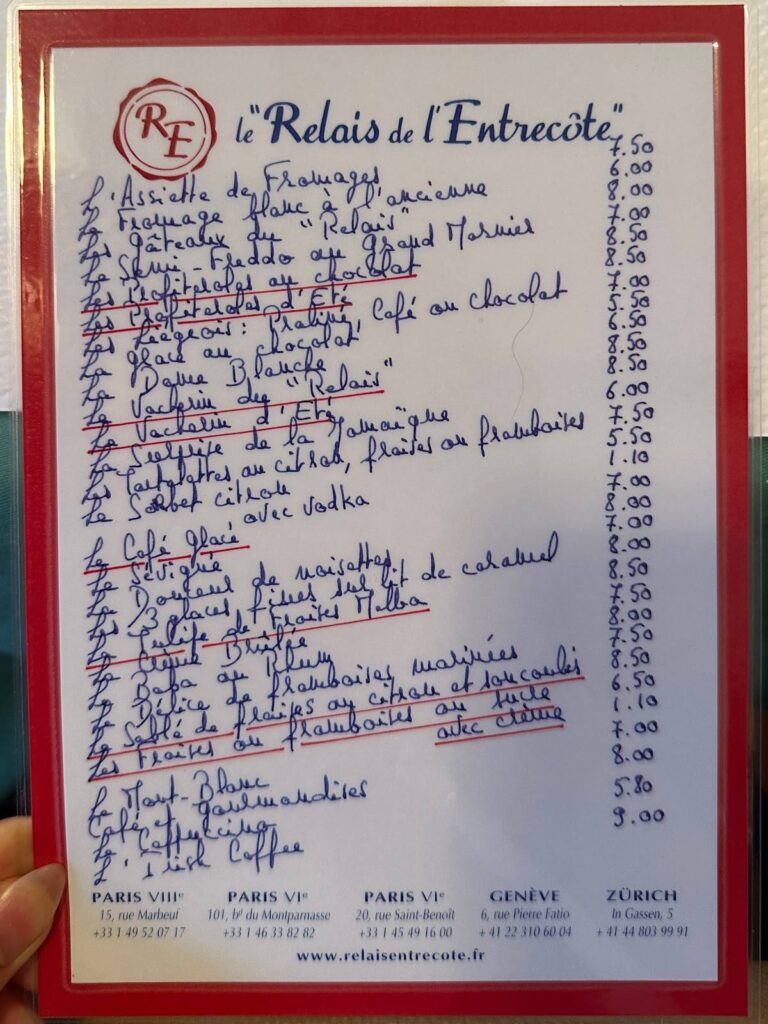 RE
le "Relais de l'Entrecôte"
L'Assiette de Fromages 7.50
Le Fromage blanc à l'ancienne 6.00
Les Gâteaux du "Relais" 8.00
Le Semi-Freddo au Grand Marnier 7.00
Les Profiteroles au chocolat 8.50
Les Profiteroles d'Eté 8.50
Les Liégeois: Praliné, Café ou chocolat 7.00
La glace au chocolat 5.50
La Dame Blanche 6.50
Le Vacherin du "Relais" 8.50
Le Vacherin d'Eté 8.50
La Surprise de la Jamaïque 6.00
Les Tartelettes au citron, fraises ou framboises 7.50
Le Sorbet citron 5.50
avec vodka 1.10
Le Café glacé 7.00
Le Sévigné 8.00
La Douceur de noisettes 7.00
Les 3 glaces fines sur lit de caramel 8.00
La Tulipe de Fraises Melba 8.50
La Crème Brûlée 7.50
Le Baba au Rhum 8.00
Le Délice de framboises marinées 7.50
Le Sablé de fraises au citron et son coulis 8.50
Les Fraises ou framboises au sucre 6.50
avec crème 1.10
Le Mont-Blanc 7.00
Café et gourmandises 8.00
Le Cappuccino 5.80
L'Irish Coffee 9.00
PARIS VIIIe PARIS VIe PARIS VIe GENÈVE ZÜRICH
15, rue Marbeuf 101, bd du Montparnasse 20, rue Saint-Benoît 6, rue Pierre Fatio In Gassen, 5
+33 1 49 52 07 17 +33 1 46 33 82 82 +33 1 45 49 16 00 + 41 22 310 60 04 + 41 44 803 99 91
www.relaisentrecote.fr